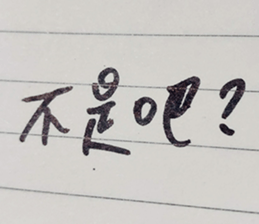 不是吧？